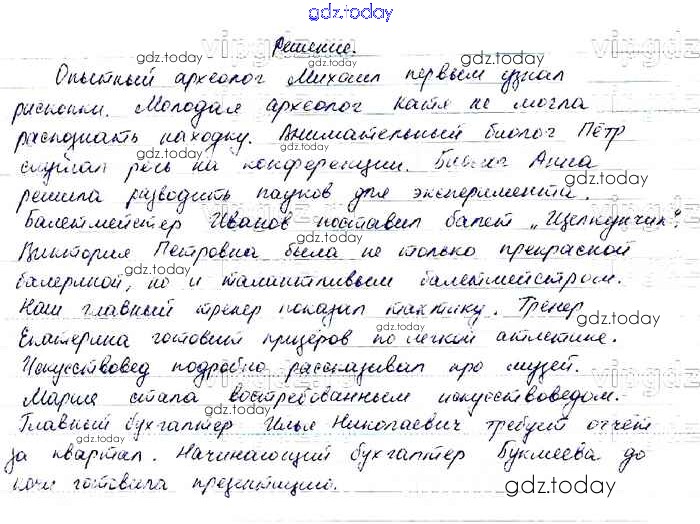 gdz.today
Решение.
Опытный археолог Михаил первым узнал
раскопки. Молодая археолог Катя не могла
распознать находку. Внимательный биолог Пётр
слушал речь на конференции. Биолог Анна
решила разводить пауков для эксперимента.
Балетмейстер Иванов поставил балет „Щелкунчик".
Виктория Петровна была не только прекрасной
балериной, но и талантливым балетмейстром.
Наш главный тренер показал тактику. Тренер
Екатерина готовит призёров по лёгкой атлетике.
Искусствовед подробно рассказывал про музей.
Мария стала востребованным искусствоведом.
Главный бухгалтер Илья Николаевич требует отчёт
за квартал. Начинающий бухгалтер Букашева до
ночи готовила презентацию.